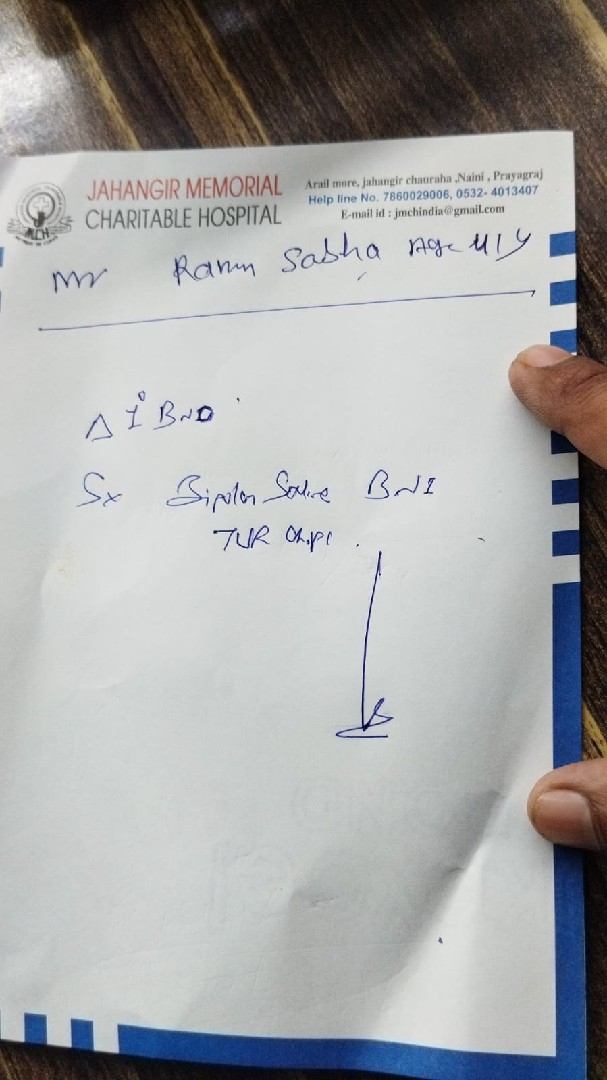 JAHANGIR MEMORIAL
CHARITABLE HOSPITAL
Arail more, jahangir chauraha ,Naini , Prayagraj
Help line No. 7860029006, 0532- 4013407
E-mail id : jmchindia@gmail.com
Mr Ramm Sabha Age 41Y
Δ 1° BNO
Sx Bipolar Saline BNI
TUR Chipi